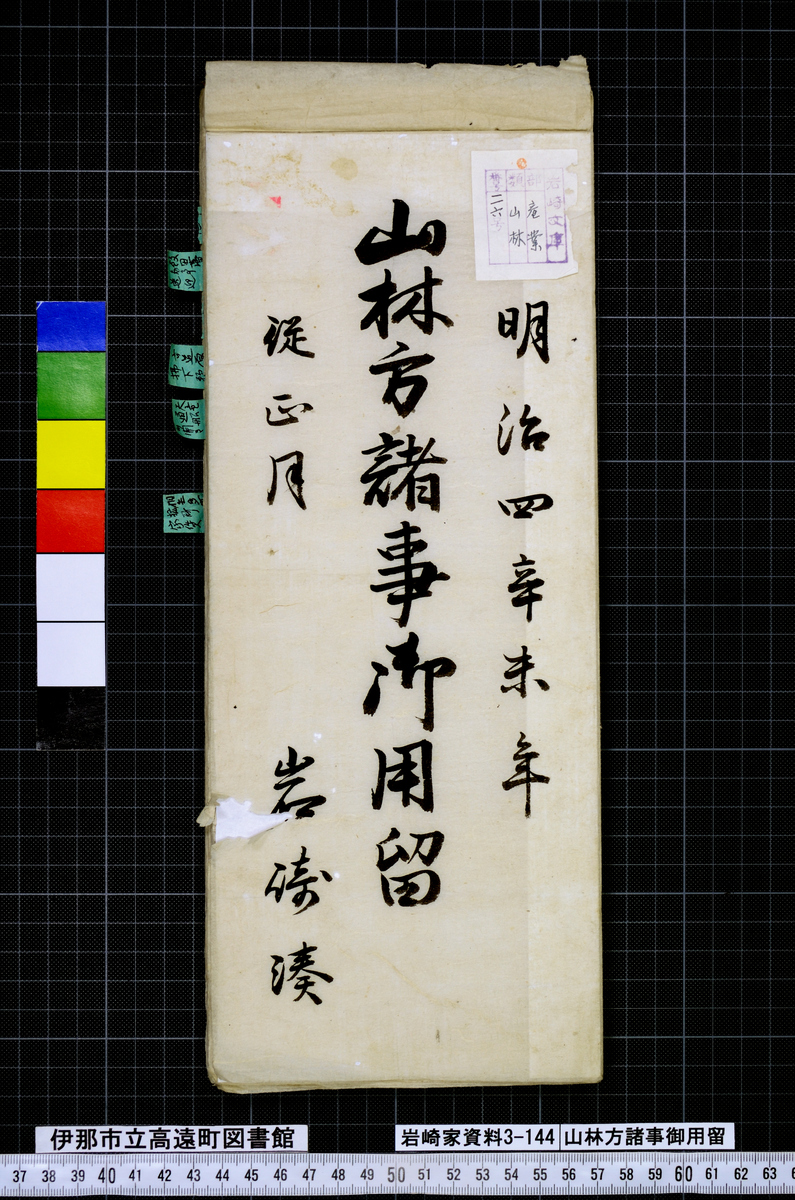 明治四辛未年
山林方諸事御用留
従正月
岩崎湊
岩崎文庫
部 産業
類 山林
番号 二六号
伊那市立高遠町図書館
岩崎家資料3-144 山林方諸事御用留
37 38 39 40 41 42 43 44 45 46 47 48 49 50 51 52 53 54 55 56 57 58 59 60 61 62 63